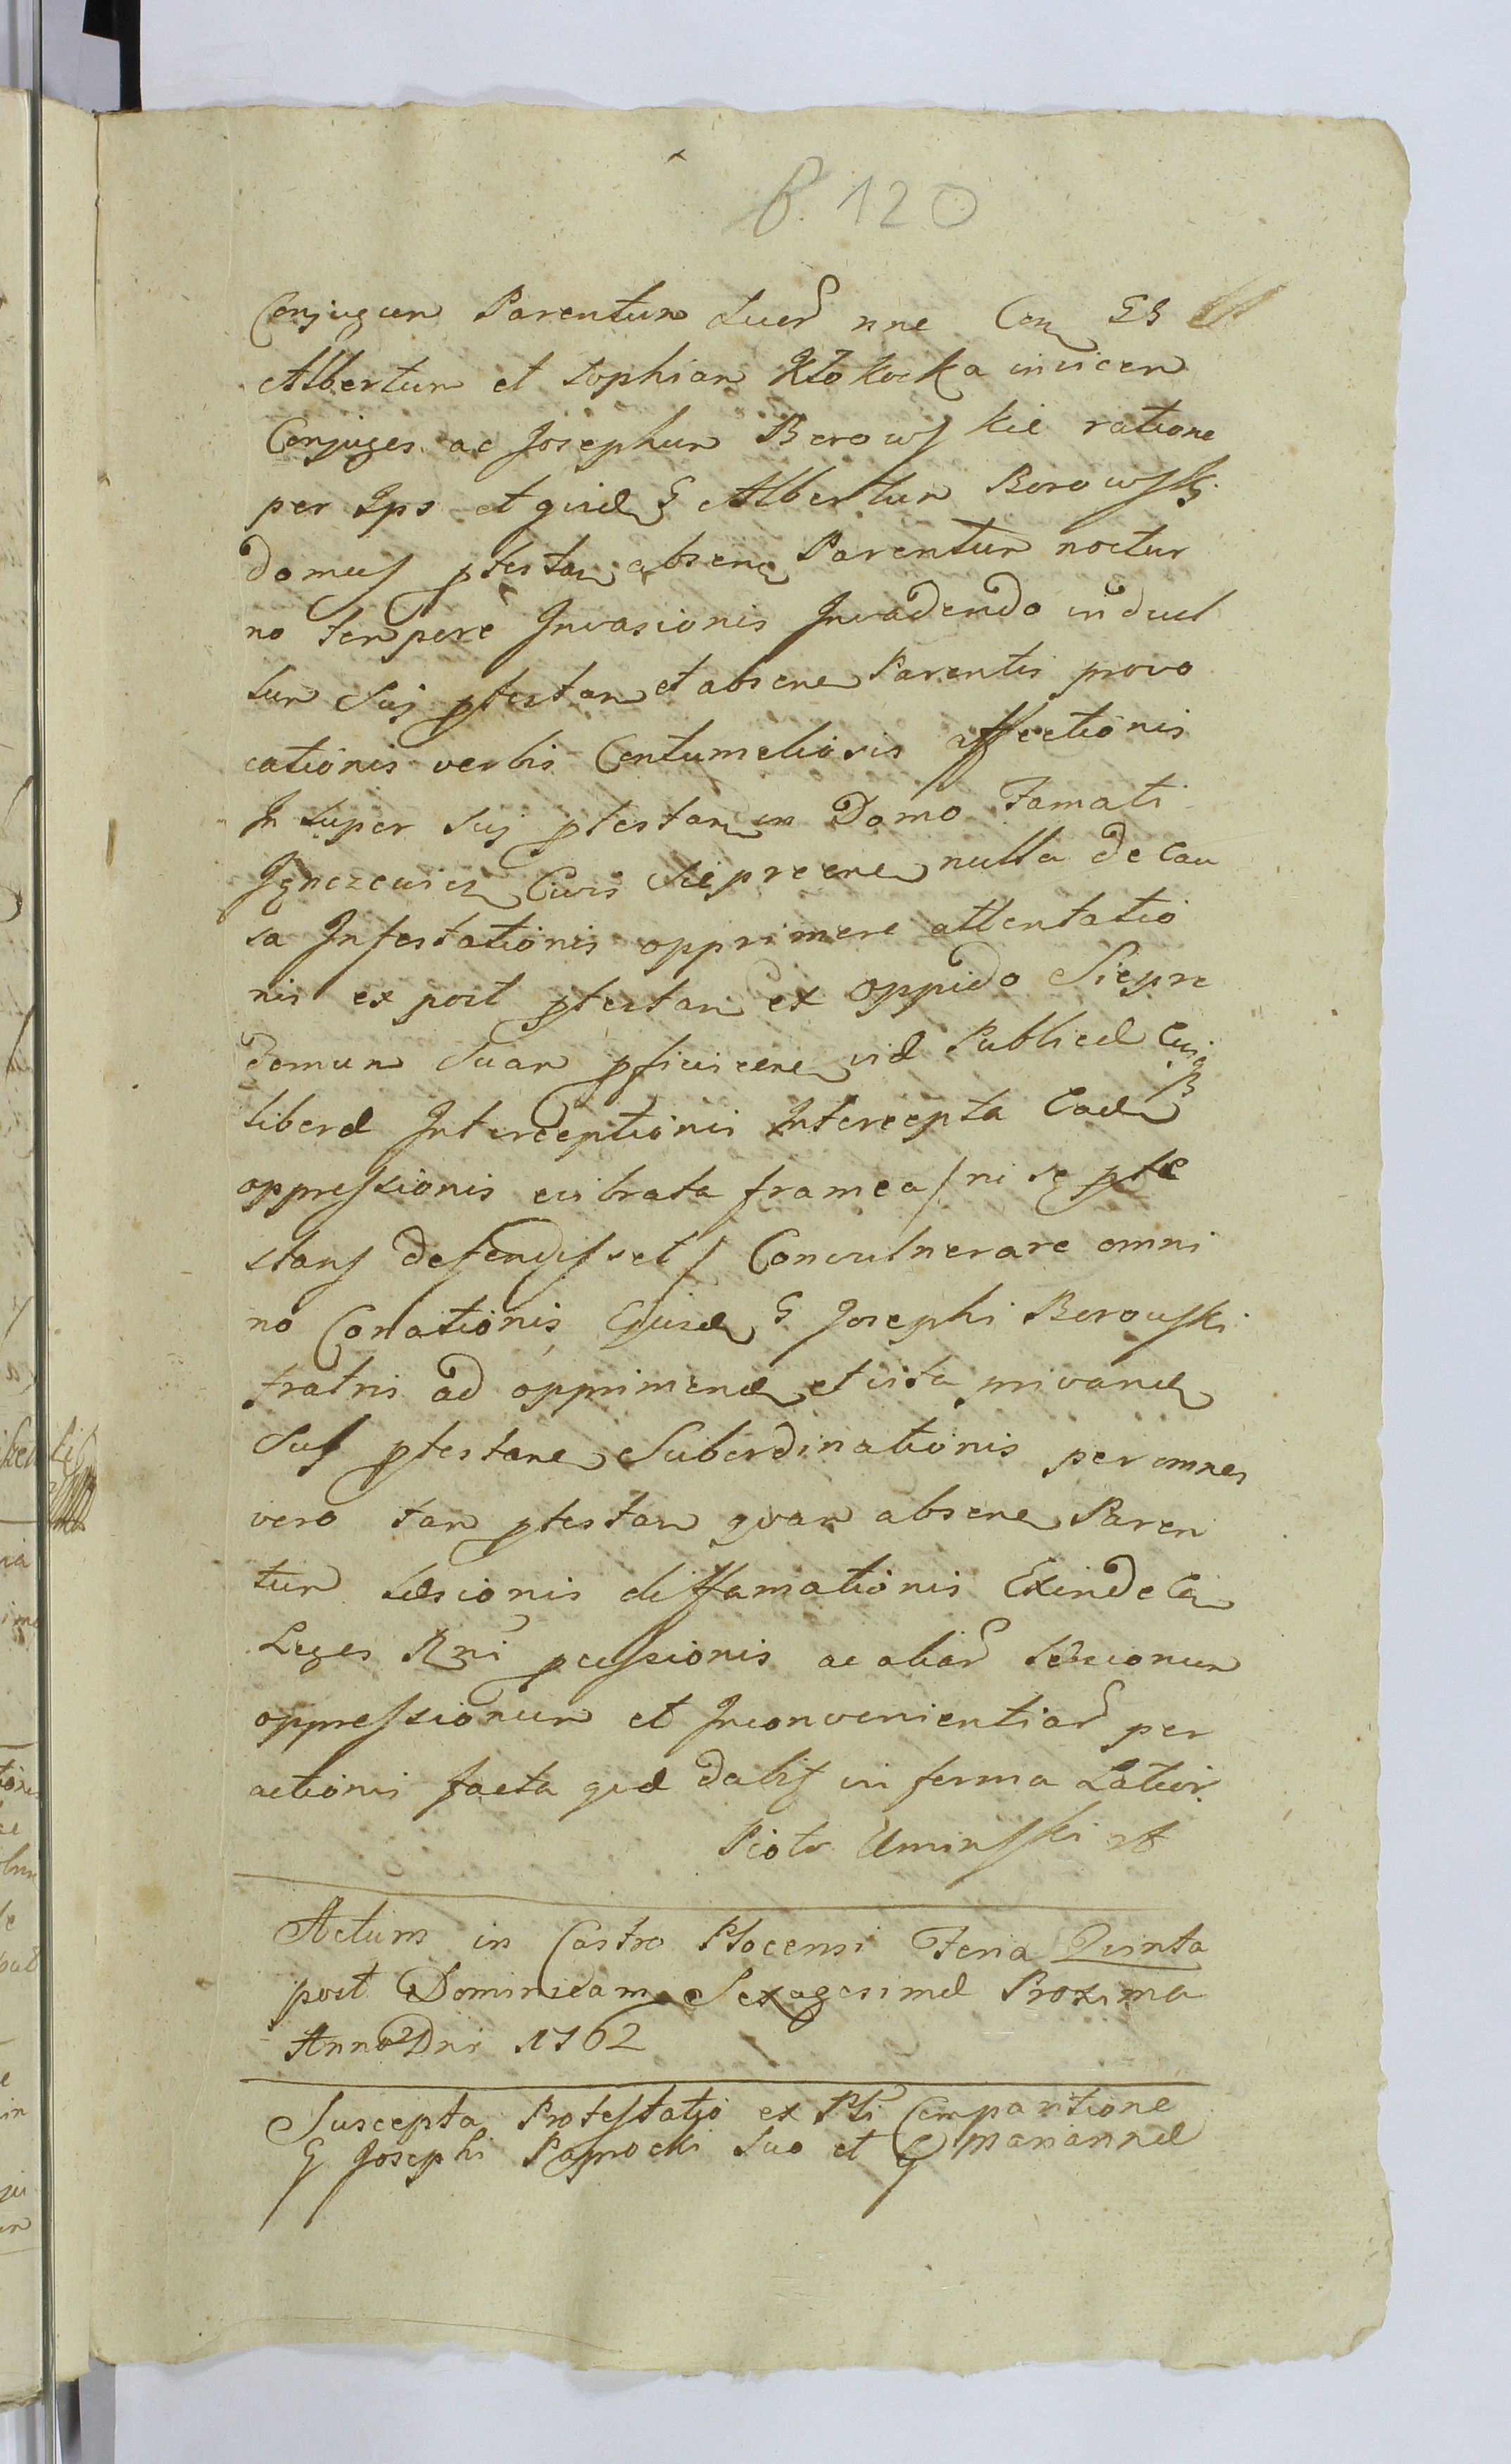 P. 120
Conjugum Parentum suor nne Con GG
Albertum et Sophiam Kłokocka invicem
Conjuges ac Josephum Borowskie ratione
per Ips et quid G Albertum Borowski
domus ptestan absen Parentum noctur
no tempore Invasionis Invadendo in duel
lum Suj ptestan et absen Parentis provo
cationis verbis Contumeliosis affectionis
In super suj ptestan in Domo Famati
Civis Sieprcen nulla de Cau
sa Infestationis opprimere attentatio
nis ex post ptestan ex oppido Sieprc
domum Suam pficiscen vid Publica
libera Interceptionis Intercepta Ead
oppressionis evibrata framea / ni se pte
stans defendisset / Convulnerare omni
no Conationis, Ejusd G Josephi Borowski
fratris ad opprimend et vita privand
Suj ptestan Subordinationis per omnes
vero tam ptestan quam absen Paren
tum Læsionis diffamationis Exinde Con
Leges Rgni pcussionis ac aliar Læsionum
oppressionum et Inconvenientiar per
actionis facta qud dabit in forma Latior.
Piotr Uminski
Actum in Castro Plocensi Feria Quinta
post Dominicam Sexagesima Proxima
Anno Dni 1762
Suscepta Protestatio ex Psti Comparitione
G Josephi Paprocki suo et G Mariannæ